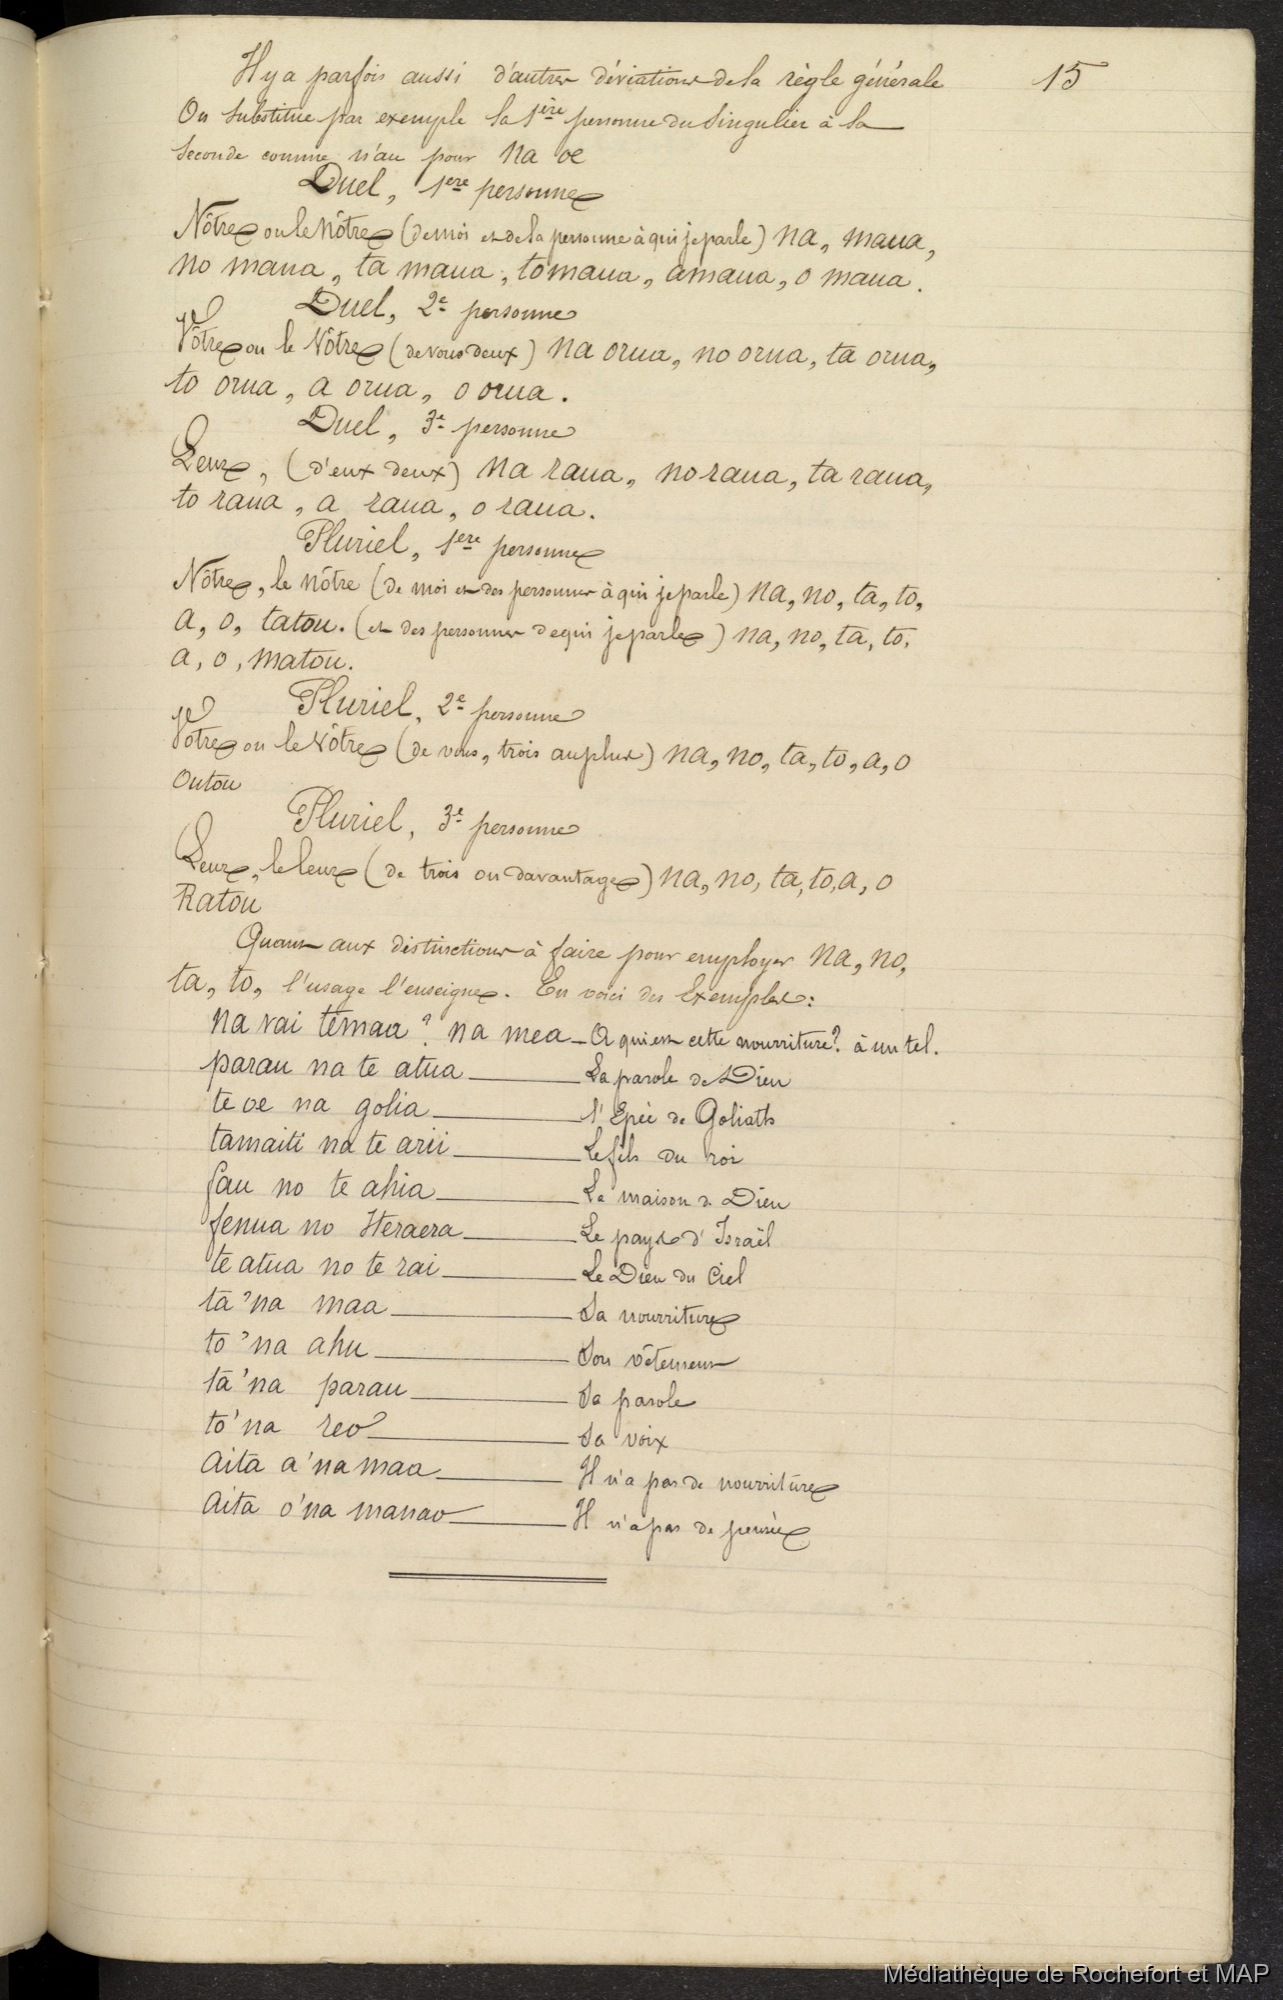 15
Il y a parfois aussi d'autres déviations de la règle générale
On substitue par exemple la 1ère personne du Singulier à la
seconde comme n'au pour na oe
Duel, 1ere personne
Nôtre ou le Nôtre (de moi et de la personne à qui je parle) na, maua,
no maua, ta maua, to maua, a maua, o maua.
Duel, 2e personne
Vôtre ou le Vôtre (de vous deux) na orua, no orua, ta orua,
to orua, a orua, o orua.
Duel, 3e personne
Leur, (d'eux deux) na raua, no raua, ta raua,
to raua, a raua, o raua.
Pluriel, 1ere personne
Nôtre, le nôtre (de moi et des personnes à qui je parle) na, no, ta, to,
a, o, tatou. (et des personnes de qui je parle) na, no, ta, to,
a, o, matou.
Pluriel, 2e personne
Vôtre ou le Vôtre (de vous, trois au plus) na, no, ta, to, a, o
outou
Pluriel, 3e personne
Leur, le leur (de trois ou davantage) na, no, ta, to, a, o
Ratou
Quant aux distinctions à faire pour employer na, no,
ta, to, l'usage l'enseigne. En voici des Exemples:
na vai temaa? na mea - A qui est cette nourriture? à un tel.
parau na te atua — La parole de Dieu
te oe na golia — l'Epée de Goliath
tamaiti na te arii — Le fils du roi
fau no te ahia — La maison de Dieu
fenua no Iteraera — Le pays d'Israël
te atua no te rai — Le Dieu du Ciel
ta 'na maa — Sa nourriture
to 'na ahu — Son vêtement
ta'na parau — Sa parole
to'na reo — Sa voix
Aita a'na maa — Il n'a pas de nourriture
Aita o'na manao — Il n'a pas de pensée
Médiathèque de Rochefort et MAP